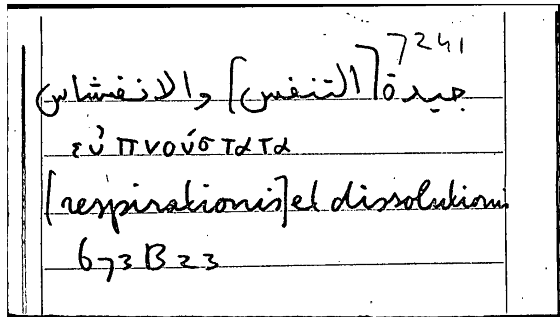 7241
جيدة [التنفس] والانفشاس
εὐπνούστατα
[respirationis] et dissolutionis
673 B 23